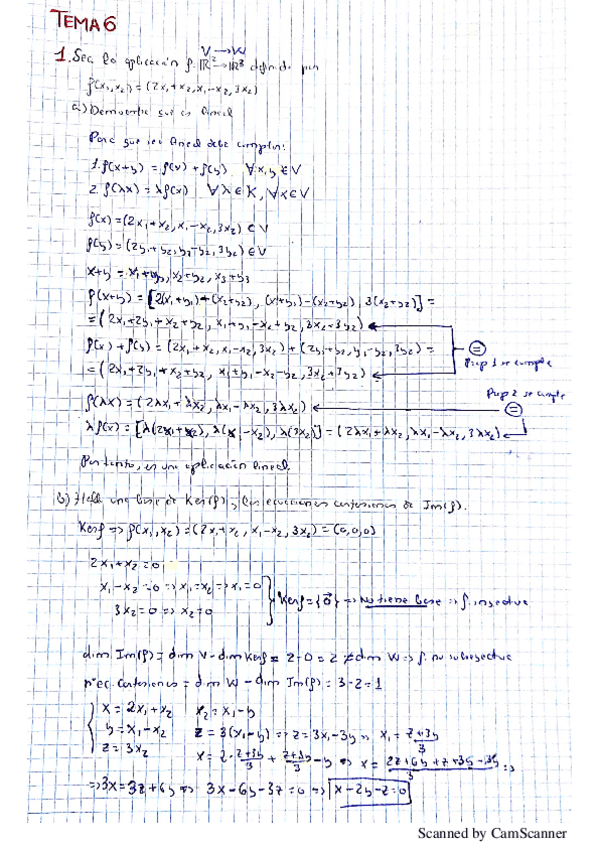 TEMA 6
V → W
1. Sea la aplicación f: ℝ² → ℝ³ definida por
f(x₁, x₂) = (2x₁+x₂, x₁-x₂, 3x₂)
a) Demuestre que es lineal
Para que sea lineal debe cumplir:
1. f(x+y) = f(x) + f(y) ∀x,y ∈ V
2. f(λx) = λf(x) ∀λ ∈ K, ∀x ∈ V
f(x) = (2x₁+x₂, x₁-x₂, 3x₂) ∈ V
f(y) = (2y₁+y₂, y₁-y₂, 3y₂) ∈ V
x+y = x₁+y₁, x₂+y₂, x₃+y₃
f(x+y) = [2(x₁+y₁)+(x₂+y₂), (x₁+y₁)-(x₂+y₂), 3(x₂+y₂)] =
= (2x₁+2y₁+x₂+y₂, x₁+y₁-x₂+y₂, 3x₂+3y₂)
f(x)+f(y) = (2x₁+x₂, x₁-x₂, 3x₂) + (2y₁+y₂, y₁-y₂, 3y₂) =
=
Prop 1 se cumple
= (2x₁+2y₁+x₂+y₂, x₁+y₁-x₂-y₂, 3x₂+3y₂)
Prop 2 se cumple
f(λx) = (2λx₁+λx₂, λx₁-λx₂, 3λx₂)
=
λf(x) = [λ(2x₁+x₂), λ(x₁-x₂), λ(3x₂)] = (2λx₁+λx₂, λx₁-λx₂, 3λx₂)
Por tanto, es una aplicación lineal.
b) Halla una base de Ker(f), las ecuaciones cartesianas de Im(f).
Kerf => f(x₁,x₂) = (2x₁+x₂, x₁-x₂, 3x₂) = (0,0,0)
2x₁+x₂=0
x₁-x₂=0 => x₁=x₂ => x₁=0
Kerf = {0⃗} => No tiene base => f. inyectiva
3x₂=0 => x₂=0
dim Im(f) = dim V - dim Kerf = 2-0 = 2 ≠ dim W => f. no sobreyectiva
nº ec. cartesianas = dim W - dim Im(f) = 3-2=1
x = 2x₁+x₂ x₂ = x₁-y
y = x₁-x₂ z = 3(x₁-y) => z = 3x₁-3y => x₁ = z+3y/3
z = 3x₂ x = 2·z+3y/3 + z+3y/3 - y => x = 2z+6y+z+3y-3y/3 =>
=> 3x = 3z+6y => 3x-6y-3z=0 => x-2y-z=0
Scanned by CamScanner